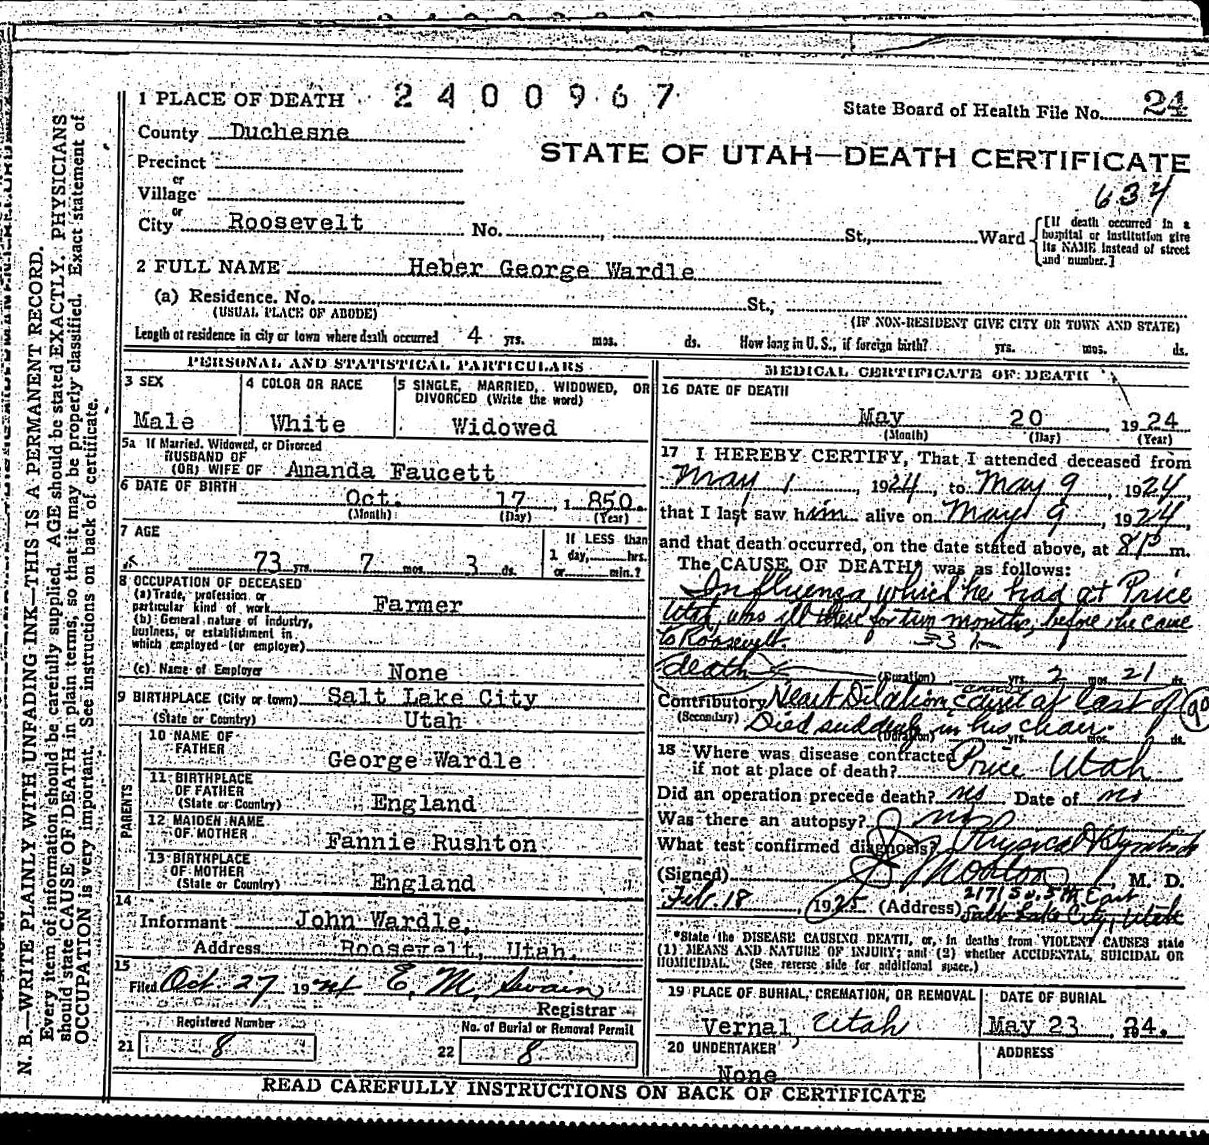 1 PLACE OF DEATH 2400967
State Board of Health File No. 24
County Duchesne
STATE OF UTAH—DEATH CERTIFICATE
Precinct
or
Village
634
or
City Roosevelt No. St., Ward
[If death occurred in a hospital or institution give its NAME instead of street and number.]
2 FULL NAME Heber George Wardle
(a) Residence. No. St.,
(USUAL PLACE OF ABODE) (IF NON-RESIDENT GIVE CITY OR TOWN AND STATE)
Length of residence in city or town where death occurred 4 yrs. mos. ds. How long in U. S., if foreign birth? yrs. mos. ds.
PERSONAL AND STATISTICAL PARTICULARS
3 SEX
Male
4 COLOR OR RACE
White
5 SINGLE, MARRIED, WIDOWED, OR
DIVORCED (Write the word)
Widowed
5a If Married, Widowed, or Divorced
HUSBAND OF
(OR) WIFE OF Amanda Faucett
6 DATE OF BIRTH
Oct. 17 1 850.
(Month) (Day) (Year)
7 AGE
73 yrs. 7 mos. 3 ds.
If LESS than
1 day, hrs.
or min.?
8 OCCUPATION OF DECEASED
(a) Trade, profession, or
particular kind of work Farmer
(b) General nature of industry,
business, or establishment in
which employed (or employer)
(c) Name of Employer None
9 BIRTHPLACE (City or town) Salt Lake City
(State or Country) Utah
PARENTS
10 NAME OF
FATHER George Wardle
11 BIRTHPLACE
OF FATHER
(State or Country) England
12 MAIDEN NAME
OF MOTHER Fannie Rushton
13 BIRTHPLACE
OF MOTHER
(State or Country) England
14
Informant John Wardle,
Address Roosevelt, Utah.
15
Filed Oct 27 1924 E. M. Swain
Registrar
Registered Number
21 8
No. of Burial or Removal Permit
22 8
MEDICAL CERTIFICATE OF DEATH
16 DATE OF DEATH
May 20, 1924
(Month) (Day) (Year)
17 I HEREBY CERTIFY, That I attended deceased from
May 1, 1924, to May 9, 1924,
that I last saw him alive on May 9, 1924
and that death occurred, on the date stated above, at 8 P m.
The CAUSE OF DEATH* was as follows:
Influenza which he had at Price
Utah, was ill there for two months, before he came
to Roosevelt.
death (Duration) yrs. 2 mos. 21 ds.
Contributory Heart Dilation, cause at last of 90
(Secondary) Died suddenly in his chair.
(Duration) yrs. mos. ds.
18 Where was disease contracted
if not at place of death? Price Utah
Did an operation precede death? no Date of no
Was there an autopsy? no
What test confirmed diagnosis? Physical
(Signed) J Morton, M. D.
Feb. 18, 1925 (Address) 2171 So. 5th East
Salt Lake City, Utah
*State the DISEASE CAUSING DEATH, or, in deaths from VIOLENT CAUSES state
(1) MEANS AND NATURE OF INJURY; and (2) whether ACCIDENTAL, SUICIDAL OR
HOMICIDAL. (See reverse side for additional space.)
19 PLACE OF BURIAL, CREMATION, OR REMOVAL
Vernal, Utah
DATE OF BURIAL
May 23, 24.
20 UNDERTAKER
None
ADDRESS
READ CAREFULLY INSTRUCTIONS ON BACK OF CERTIFICATE
N. B.—WRITE PLAINLY WITH UNFADING INK—THIS IS A PERMANENT RECORD.
Every item of information should be carefully supplied. AGE should be stated EXACTLY. PHYSICIANS
should state CAUSE OF DEATH in plain terms, so that it may be properly classified. Exact statement of
OCCUPATION is very important. See instructions on back of certificate.